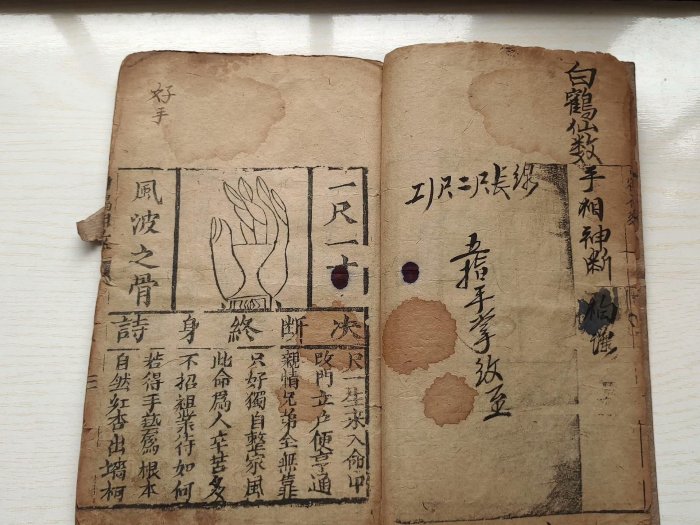 白鶴仙数手相神断
五指平拳
一尺一寸
風波之骨
决断終身詩
尺一生来入命中
改門立户便亨通
親情兄弟全無靠
只好獨自整家風
此命爲人辛苦多
不招祖業待如何
若得手藝爲根本
自然紅杏出墻柯
好手